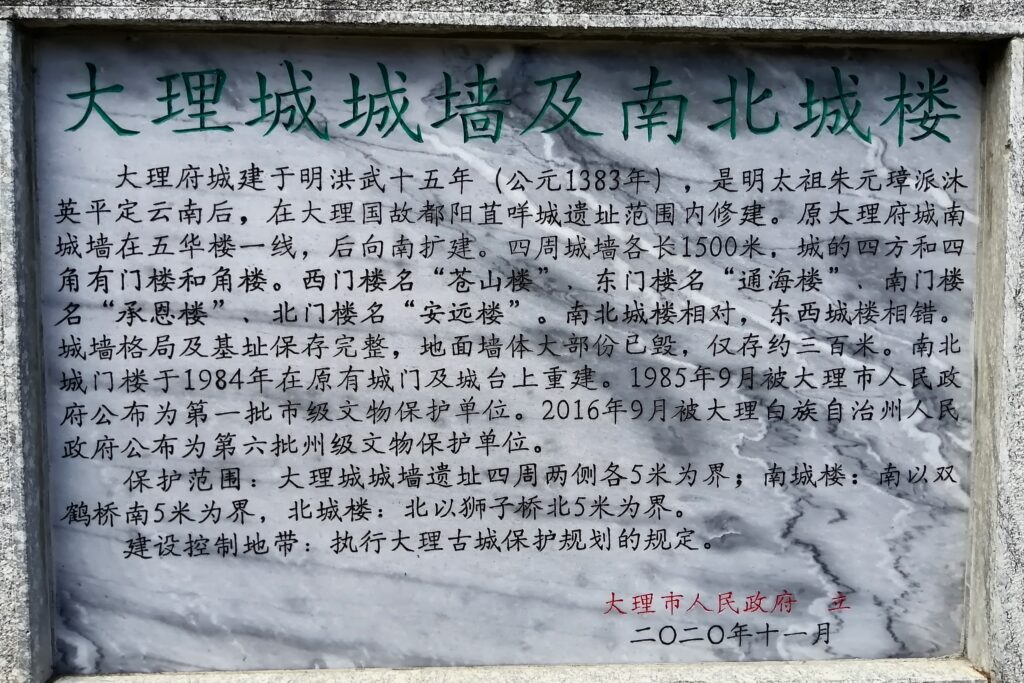 大理城城墙及南北城楼
大理府城建于明洪武十五年（公元1383年），是明太祖朱元璋派沐
英平定云南后，在大理国故都阳苴咩城遗址范围内修建。原大理府城南
城墙在五华楼一线，后向南扩建。四周城墙各长1500米，城的四方和四
角有门楼和角楼。西门楼名“苍山楼”、东门楼名“通海楼”、南门楼
名“承恩楼”、北门楼名“安远楼”。南北城楼相对，东西城楼相错。
城墙格局及基址保存完整，地面墙体大部份已毁，仅存约三百米。南北
城门楼于1984年在原有城门及城台上重建。1985年9月被大理市人民政
府公布为第一批市级文物保护单位。2016年9月被大理白族自治州人民
政府公布为第六批州级文物保护单位。
保护范围：大理城城墙遗址四周两侧各5米为界；南城楼：南以双
鹤桥南5米为界，北城楼：北以狮子桥北5米为界。
建设控制地带：执行大理古城保护规划的规定。
大理市人民政府 立
二〇二〇年十一月